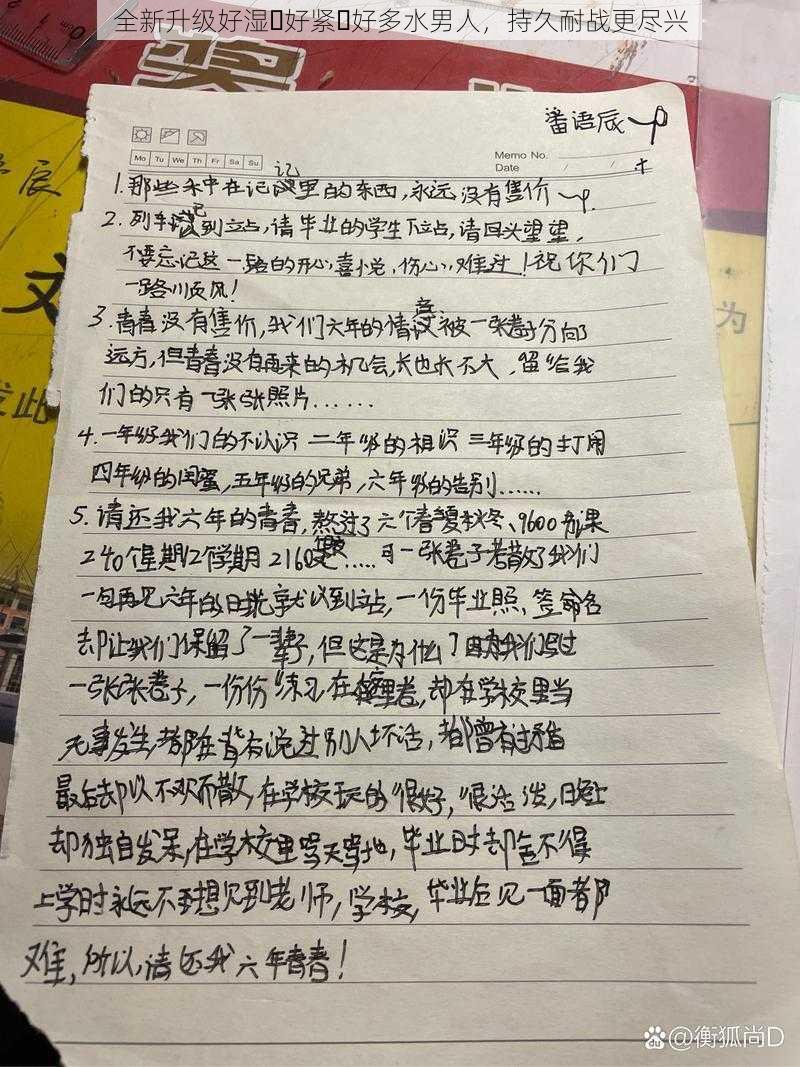 全新升级好湿好紧好多水男人，持久耐战更尽兴
Mo Tu We Th Fr Sa Su
Memo No.
Date / /
语辰
记
1.那些 在记 里的东西,永远没有售价
2.列车 到立占,请毕业的学生下立占,请回头望望,
不要忘记这一路的开心,喜悦,伤心,难过!祝你们
一路川页风!
3.青春没有售价,我们六年的情 被一张卷子分向
远方,但青春没有再来的机会,长也长不大,留给我
们的只有一张张照片......
4.一年级我们的不认识 二年级的相识 三年级的打闹
四年级的闺蜜,五年级的兄弟,六年级的告别......
5.请还我六年的青春,熬过了六个春夏秋冬、9600 课
240个星期12个学期 2160 ..... 一张卷子 散了我们
一句再见六年的日 到立占,一份毕业照、签 名
却让我们保留了一辈子,但这是为什么?因为我们 过
一张张卷子,一份份练习,在 里卷,却在学校里当
无事发生,都在背 说过别人坏话,都曾有过矛盾
最后却以不欢而散,在学校玩的很好,很活泼,日
却独自发呆,在学校里骂天骂地,毕业时却舍不得
上学时永远不 想见到老师,学校,毕业后见一面都
难,所以,请还我六年青春!
文
发此
为
辰
Baidu @衡狐尚D